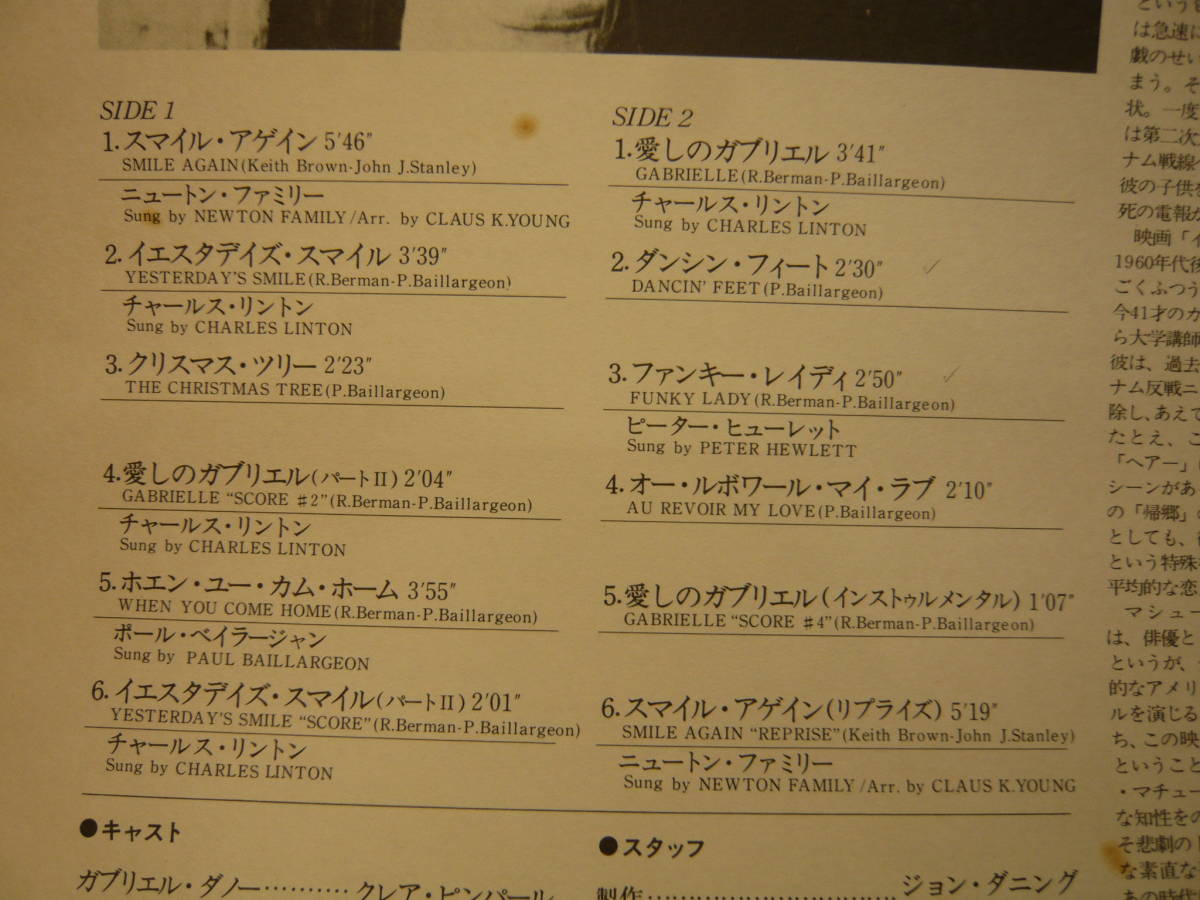 SIDE 1
1.スマイル・アゲイン 5'46"
SMILE AGAIN(Keith Brown-John J.Stanley)
ニュートン・ファミリー
Sung by NEWTON FAMILY/Arr. by CLAUS K.YOUNG
2.イエスタデイズ・スマイル 3'39"
YESTERDAY'S SMILE(R.Berman-P.Baillargeon)
チャールス・リントン
Sung by CHARLES LINTON
3.クリスマス・ツリー 2'23"
THE CHRISTMAS TREE(P.Baillargeon)
4.愛しのガブリエル(パートII) 2'04"
GABRIELLE "SCORE ♯2"(R.Berman-P.Baillargeon)
チャールス・リントン
Sung by CHARLES LINTON
5.ホエン・ユー・カム・ホーム 3'55"
WHEN YOU COME HOME(R.Berman-P.Baillargeon)
ポール・ベイラージャン
Sung by PAUL BAILLARGEON
6.イエスタデイズ・スマイル(パートII) 2'01"
YESTERDAY'S SMILE "SCORE"(R.Berman-P.Baillargeon)
チャールス・リントン
Sung by CHARLES LINTON
SIDE 2
1.愛しのガブリエル 3'41"
GABRIELLE(R.Berman-P.Baillargeon)
チャールス・リントン
Sung by CHARLES LINTON
2.ダンシン・フィート 2'30"
DANCIN' FEET(P.Baillargeon)
3.ファンキー・レイディ 2'50"
FUNKY LADY(R.Berman-P.Baillargeon)
ピーター・ヒューレット
Sung by PETER HEWLETT
4.オー・ルボワール・マイ・ラブ 2'10"
AU REVOIR MY LOVE(P.Baillargeon)
5.愛しのガブリエル(インストゥルメンタル) 1'07"
GABRIELLE "SCORE ♯4"(R.Berman-P.Baillargeon)
6.スマイル・アゲイン(リプライズ) 5'19"
SMILE AGAIN "REPRISE"(Keith Brown-John J.Stanley)
ニュートン・ファミリー
Sung by NEWTON FAMILY/Arr. by CLAUS K.YOUNG
●キャスト
ガブリエル・ダノー………クレア・ピンパール
●スタッフ
製作………………………ジョン・ダニング
は急速に
戯のせい
まう。そ
状。一度
は第二次
ナム戦線
彼の子供を
死の電報が
映画「イ
1960年代後
ごくふつう
今41才のカ
ら大学講師
彼は、過去
ナム反戦ニ
除し、あえて
たとえ、こ
「ヘアー」
シーンがあ
の「帰郷」の
としても、
という特殊
平均的な恋
マシュー
は、俳優と
というが、
的なアメリ
ルを演じる
ち、この映
ということ
・マチュー
な知性をの
そ悲劇の
な素直な
あの時代